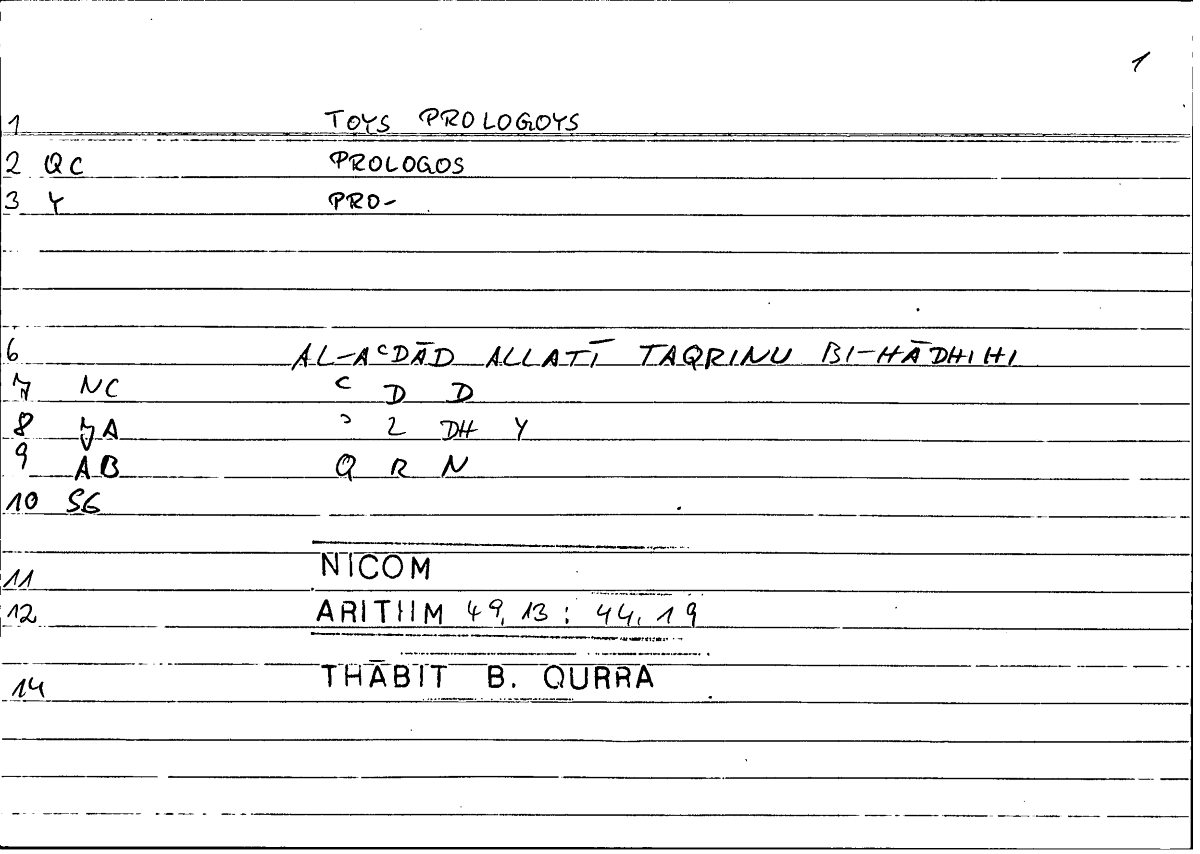 1
1 TOYS PROLOGOYS
2 QC PROLOGOS
3 Y PRO-
6 AL-AᶜDĀD ALLATĪ TAQRINU BI-HĀDHIHI
7 NC ᶜ D D
8 JA ᵓ L DH Y
9 AB Q R N
10 SG
11 NICOM
12 ARITHM 49, 13 : 44, 19
14 THĀBIT B. QURRA